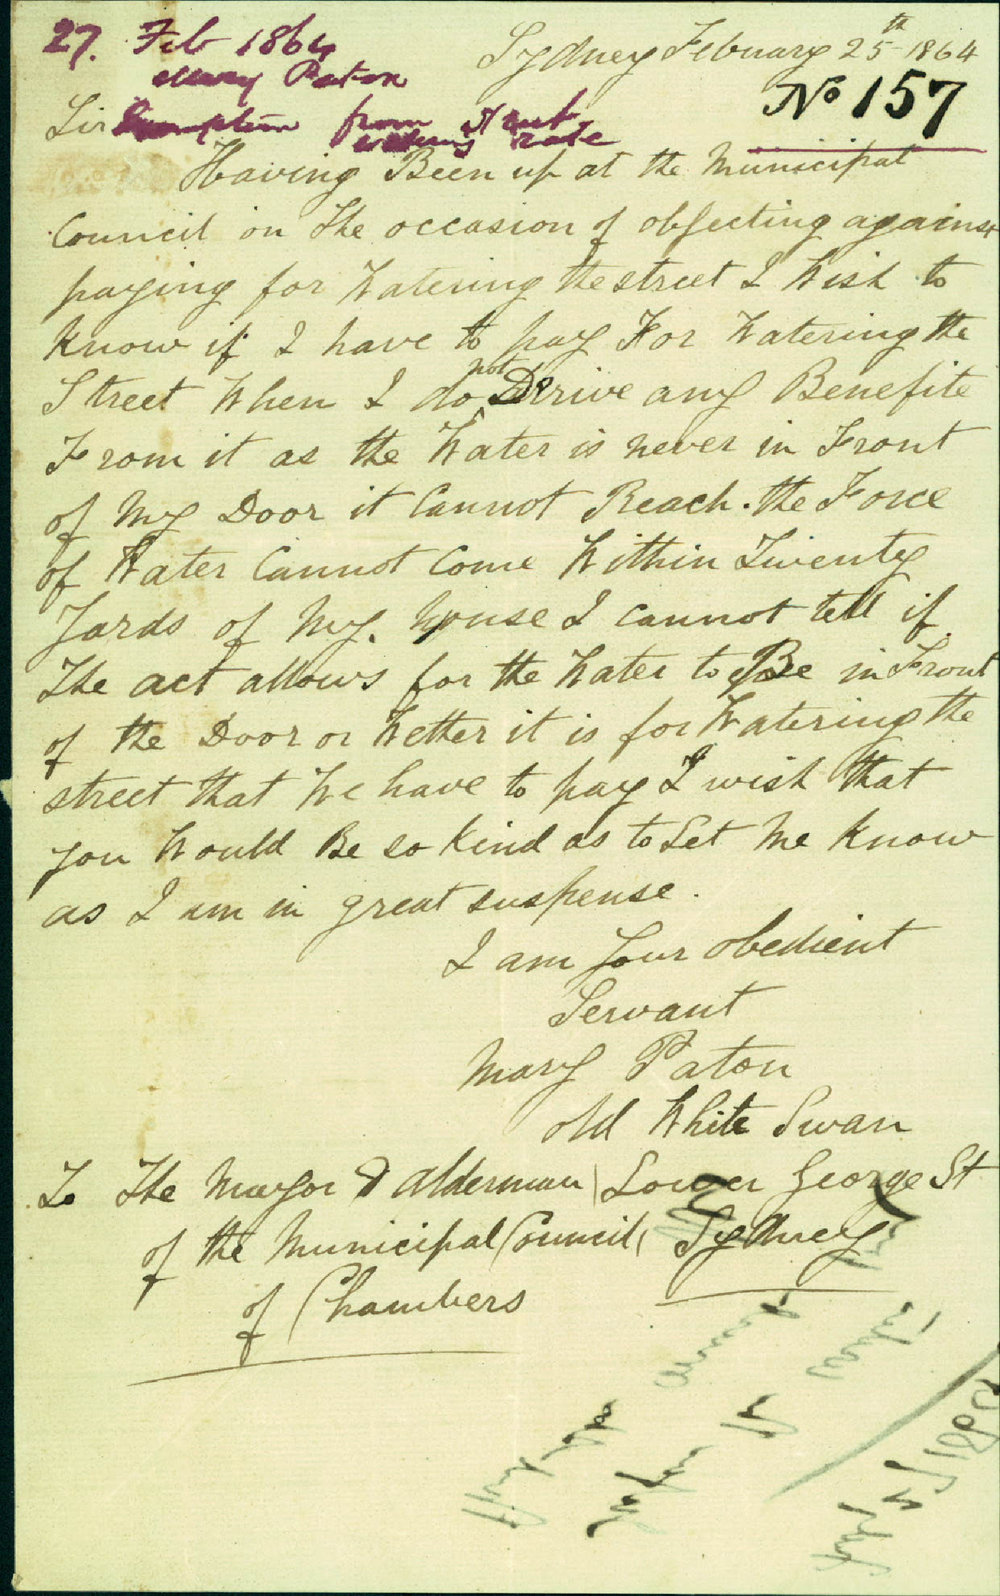 27. Feb 1864
Mary Paton
Sydney February 25th 1864
No 157
Sir
Exemption from Street
watering rate
Having Been up at the Municipal
Council on the occasion of objecting against
paying for Watering the street I Wish to
Know if I have to pay For Watering the
Street When I do not Derive any Benefite
From it as the Water is never in Front
of My Door it Cannot Reach. the Force
of Water Cannot Come Within Twenty
Yards of My. house I cannot tell if
The act allows for the Water to Be in Front
of the Door or Wether it is for Watering the
street that We have to pay I wish that
you Would Be so Kind as to Let Me Know
as I am in great suspense.
I am Your obedient
Servant
Mary Paton
old White Swan
Lower George St
Sydney
To The Mayor & Alderman
of the Municipal Council
of Chambers